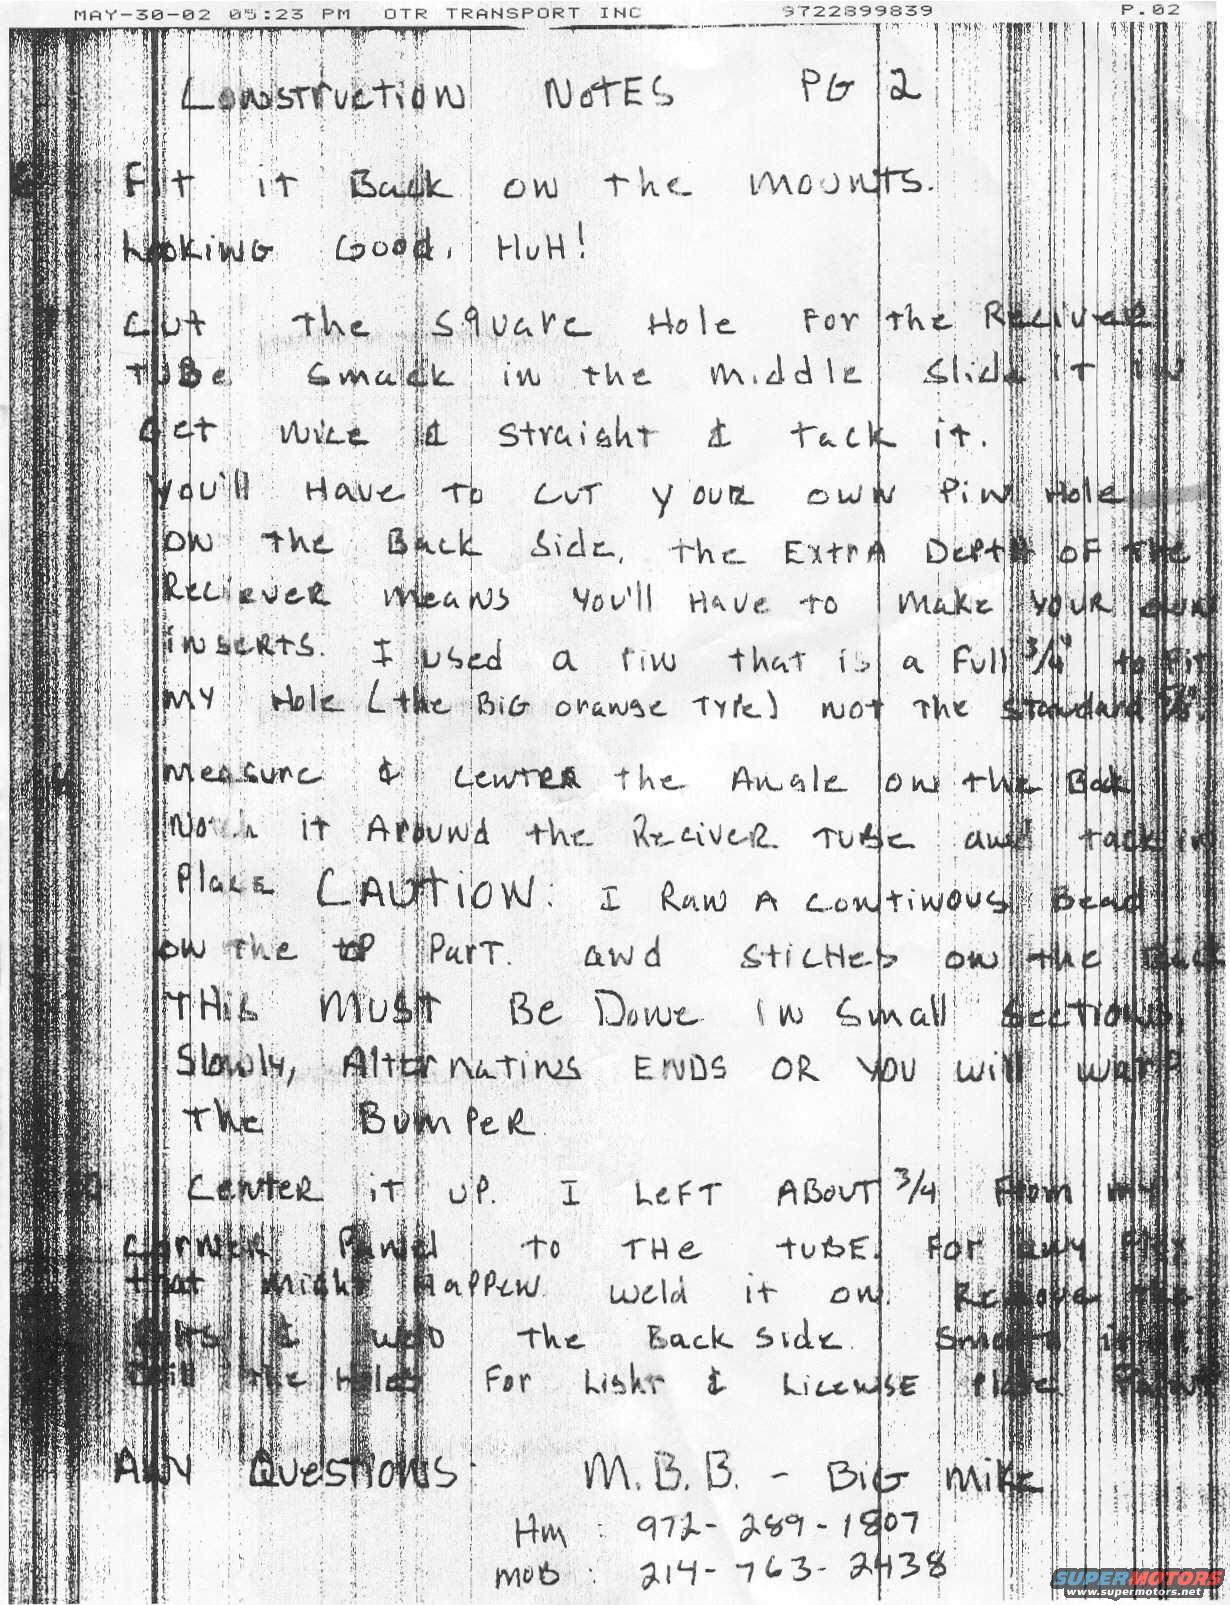 MAY-30-02 05:23 PM OTR TRANSPORT INC 9722899839 P.02
Construction Notes PG 2
Fit it Back on the mounts.
Looking Good, HuH!
Cut the square Hole For the Reciver
tuBe smack in the middle slide it in
Get nice & straight & tack it.
You'll Have to cut your own Pin Hole
on the Back side. the Extra Depth of the
Reciever means You'll Have to make your own
inserts. I used a Pin that is a Full 3/4" to Fit
my Hole (the BiG orange Type) not the standard 5/8".
measure & center the Angle on the Back
Notch it Around the Reciver TuBe and tack in
Place CAUTION: I Ran A continous Bead
on the top Part. and stiches on the Back
THis must Be Done in Small sections,
Slowly, Alternating ENDS OR YOU will warp
the BumPer
Center it up. I LeFT ABOUT 3/4 From my
corner Panel to THe tuBE. For any Flex
that might HaPPen weld it on. Remove the
& the Back side Smooth it
Drill the Holes For Light & License Plate
Any Questions: M.B.B. - BiG Mike
Hm : 972-289-1807
moB : 214-763-2438
SUPERMOTORS
www.supermotors.net